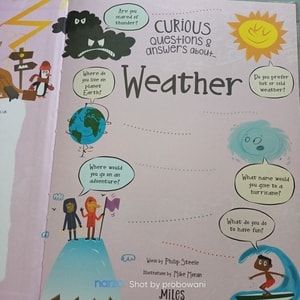 Are you
scared of
thunder?
CURIOUS
questions &
answers about...
Weather
Where do
you live on
planet
Earth?
Do you prefer
hot or cold
weather?
Where would
you go on an
adventure?
What name would
you give to a
hurricane?
What do you
do to
have fun?
Words by Philip Steele
Illustrations by Mike Moran
Miles
narzo Shot by probowani